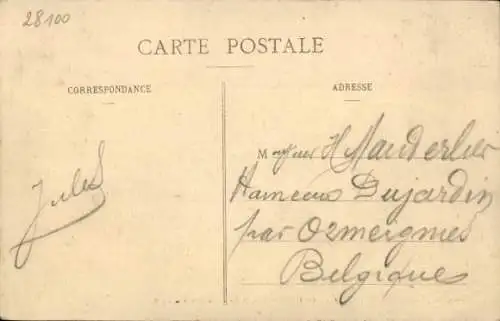 28100
CARTE POSTALE
CORRESPONDANCE
ADRESSE
Jules
Monsieur H Mauderlier
Hameau Dujardin
par Ormeignies
Belgique